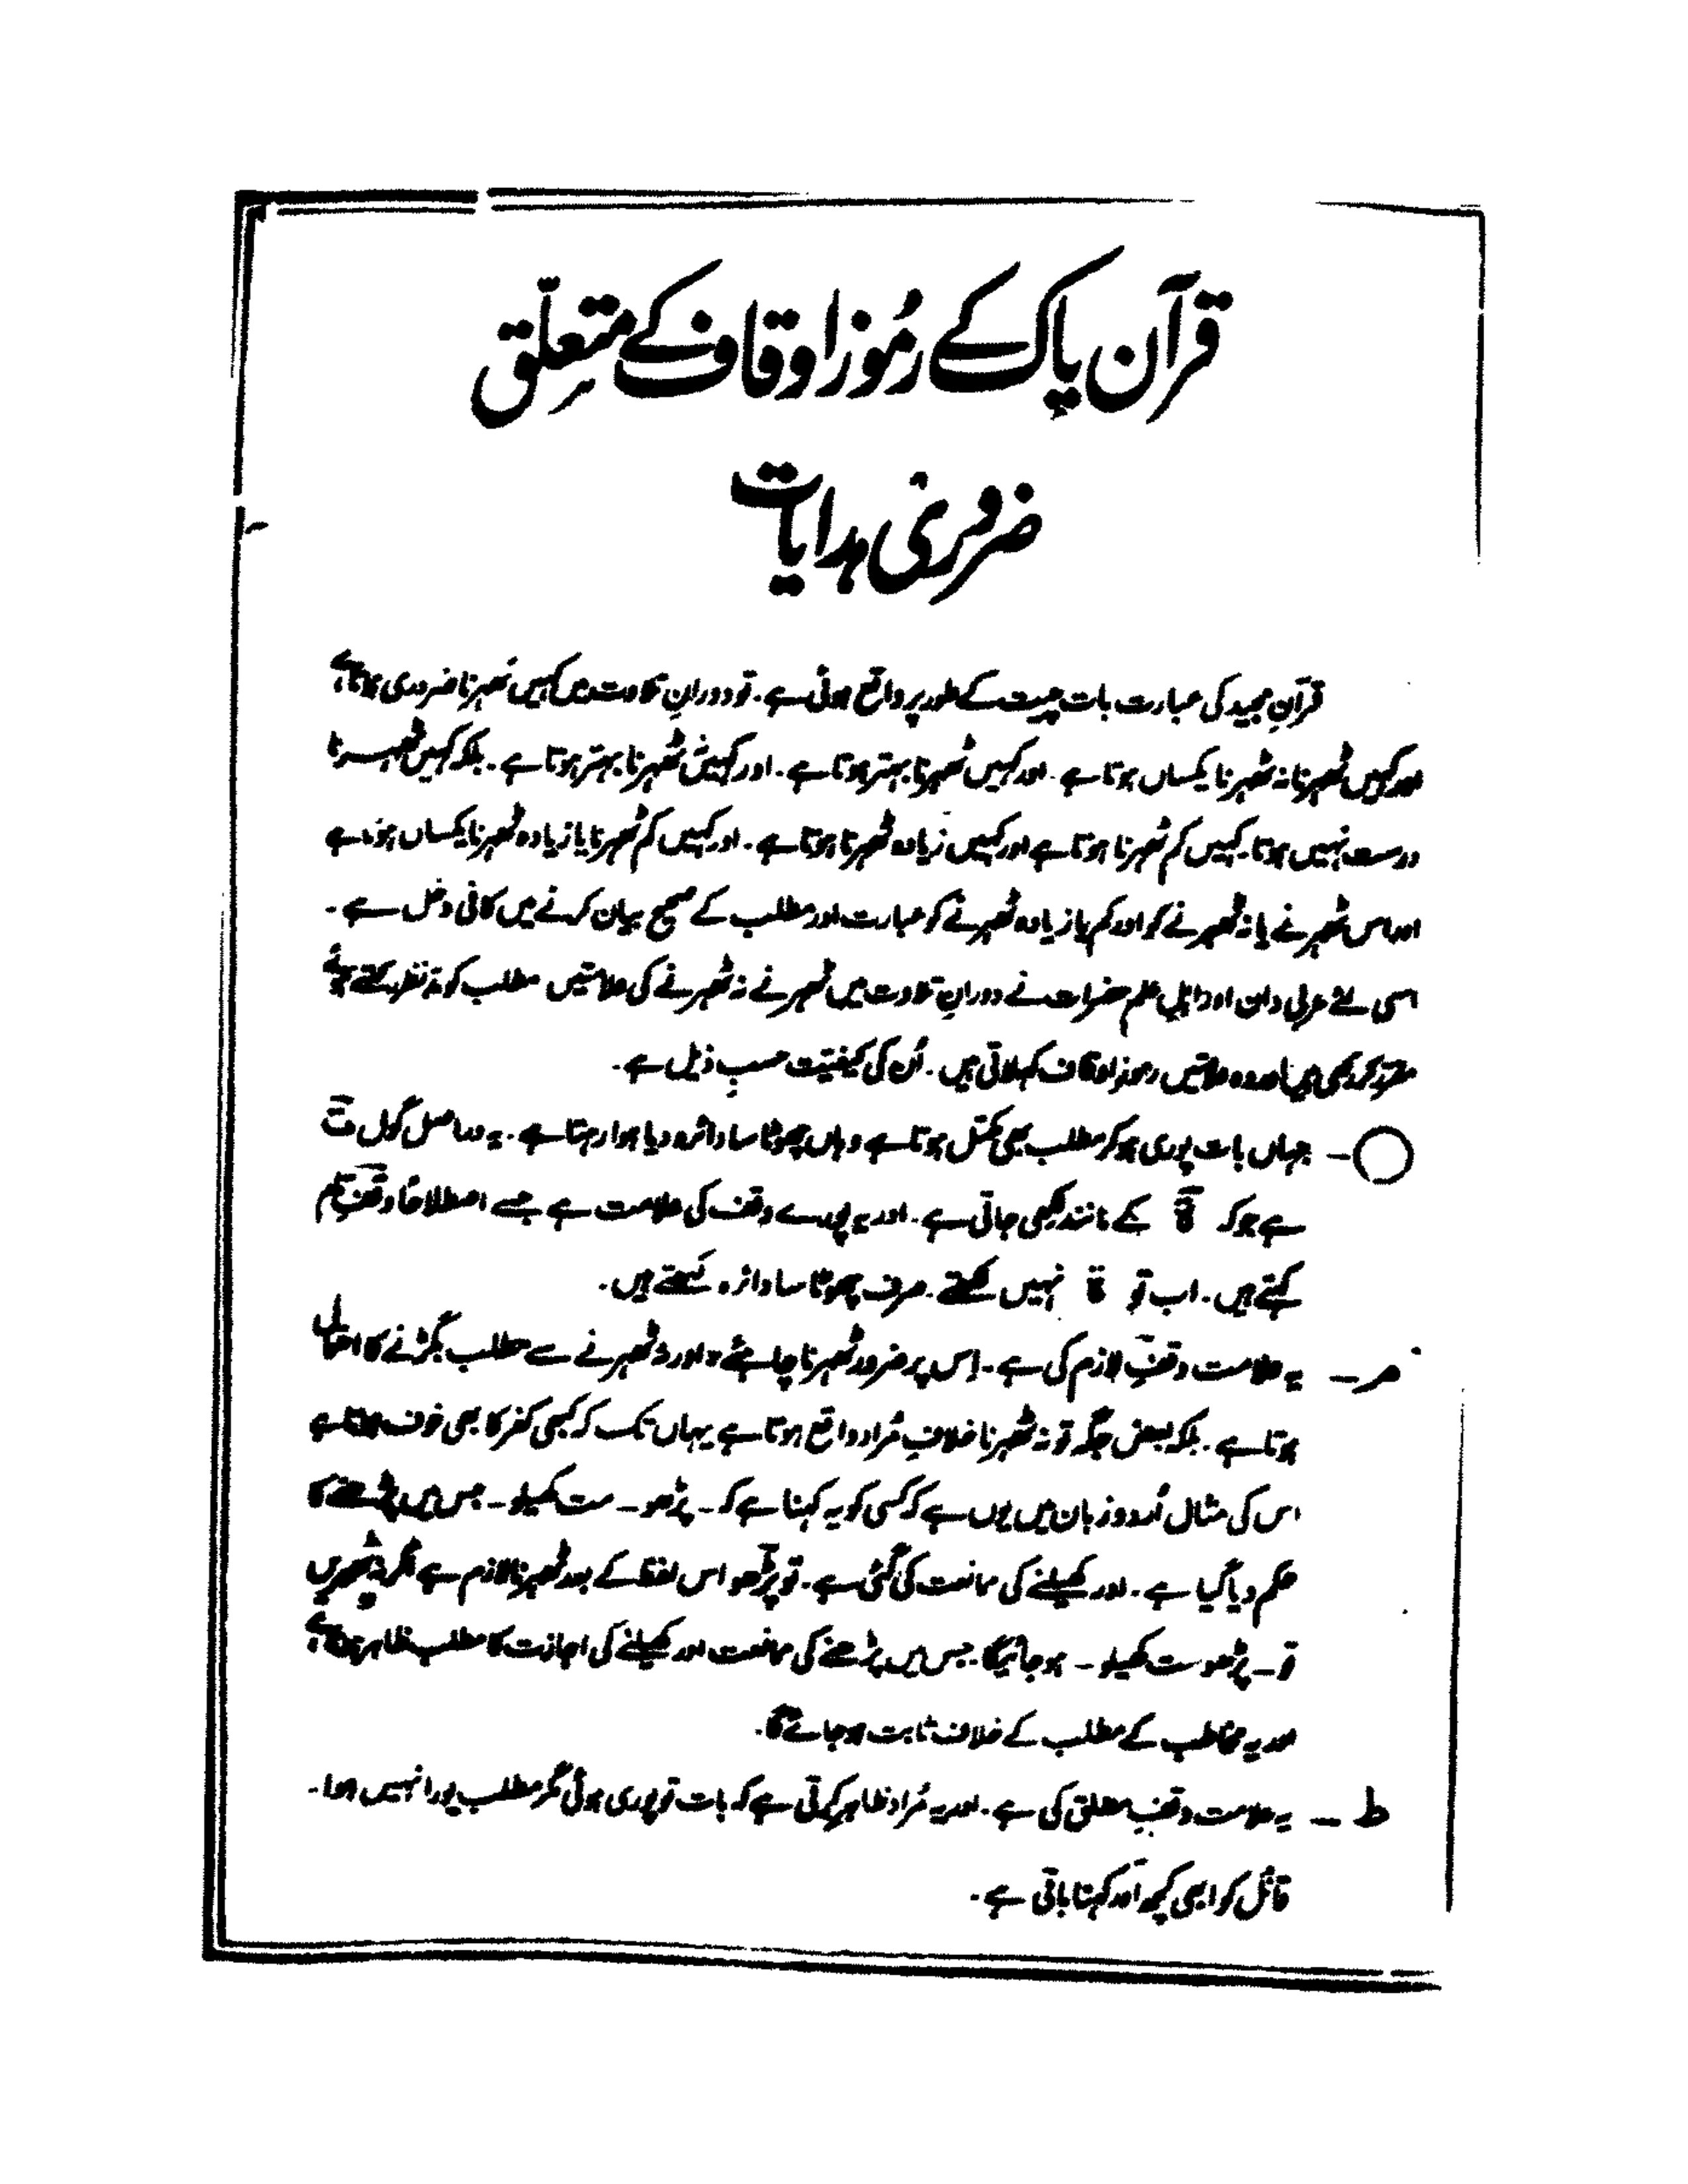 قرآن پاک کے رُموز اوقاف کے متعلّق
ضروری ہدایات
قرآنِ مجید کی عبارت بات چیت کے طور پر واقع ہوئی ہے۔ تو دورانِ تلاوت میں کہیں ٹھہرنا ضروری ہوتا ہے
اور کہیں ٹھہرنا نہ ٹھہرنا یکساں ہوتا ہے۔ اور کہیں ٹھہرنا بہتر ہوتا ہے۔ اور کہیں نہ ٹھہرنا بہتر ہوتا ہے۔ بلکہ کہیں ٹھہرنا
درست نہیں ہوتا۔ کہیں کم ٹھہرنا ہوتا ہے اور کہیں زیادہ ٹھہرنا ہوتا ہے۔ اور کہیں کم ٹھہرنا یا زیادہ ٹھہرنا یکساں ہوتا ہے
اور اس ٹھہرنے یا نہ ٹھہرنے کو اور کم یا زیادہ ٹھہرنے کو عبارت اور مطلب کے صحیح بیان کرنے میں کافی دخل ہے۔
اسی لئے عربی دان اور اہلِ علم حضرات نے دورانِ تلاوت میں ٹھہرنے نہ ٹھہرنے کی علامتیں مطلب کو مدّنظر رکھتے ہوئے
مقرر کر دی ہیں اور وہ علامتیں رموز اوقاف کہلاتی ہیں۔ اُن کی کیفیّت حسبِ ذیل ہے۔
◯ – جہاں بات پوری ہو کر مطلب بھی مکمّل ہوتا ہے وہاں چھوٹا سا دائرہ دیا ہوا رہتا ہے۔ یہ دراصل گول تؔ
ہے جو کہ ۃ کے مانند لکھی جاتی ہے۔ اور یہ پورے وقف کی علامت ہے جسے اصطلاحًا وقفِ تام
کہتے ہیں۔ اب تو ۃ نہیں لکھتے۔ صرف چھوٹا سا دائرہ لکھتے ہیں۔
مر – یہ علامت وقفِ لازم کی ہے۔ اِس پر ضرور ٹھہرنا چاہئے اور نہ ٹھہرنے سے مطلب بگڑنے کا احتمال
ہوتا ہے۔ بلکہ بعض جگہ تو نہ ٹھہرنا خلافِ مُراد واقع ہوتا ہے یہاں تک کہ کبھی کفر کا بھی خوف ہوتا ہے
اس کی مثال اُردو زبان میں یوں ہے کہ کسی کو یہ کہنا ہے کہ – پڑھو – مت کھیلو – جس میں پڑھنے کا
حکم دیا گیا ہے۔ اور کھیلنے کی ممانعت کی گئی ہے۔ تو پڑھو اس لفظ کے بعد ٹھہرنا لازم ہے اگر نہ ٹھہریں
تو – پڑھو مت کھیلو – ہو جائیگا۔ جس میں پڑھنے کی ممانعت اور کھیلنے کی اجازت کا مطلب ظاہر ہوتا ہے
اور یہ مخاطب کے مطلب کے خلاف ثابت ہو جائے گا۔
ط – یہ علامت وقفِ مطلق کی ہے۔ اور یہ مُراد ظاہر کرتی ہے کہ بات تو پوری ہوئی مگر مطلب پورا نہیں ہوا۔
قائل کو ابھی کچھ اور کہنا باقی ہے۔